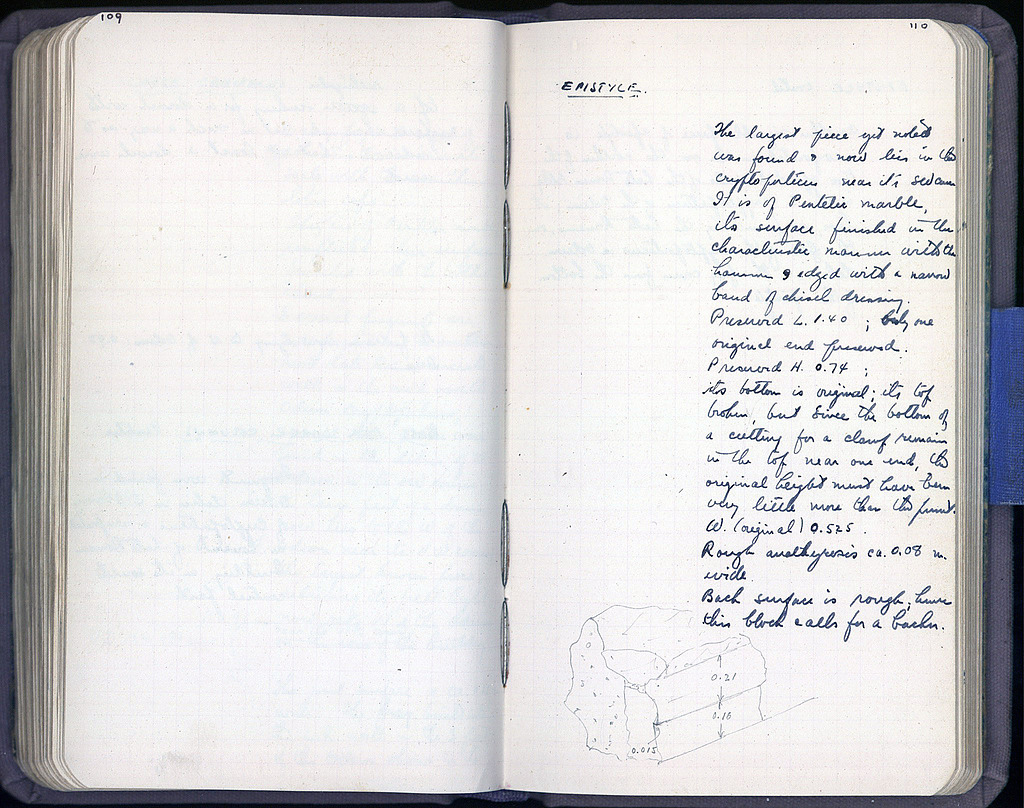 109
110
EPISTYLE.
The largest piece yet noted
was found & now lies in the
cryptoporticus near its
It is of Pentelic marble,
its surface finished in the
characteristic manner with the
hammer & edged with a narrow
band of chisel dressing.
Preserved L. 1.40 ; only one
original end preserved.
Preserved H. 0.74 ;
its bottom is original; its top
broken, but since the bottom of
a cutting for a clamp remain
in the top near one end, the
original height must have been
very little more than the
W. (original) 0.525.
Rough anathyrosis ca. 0.08 m.
wide.
Back surface is rough; hence
this block calls for a backer.
0.21
0.16
0.015